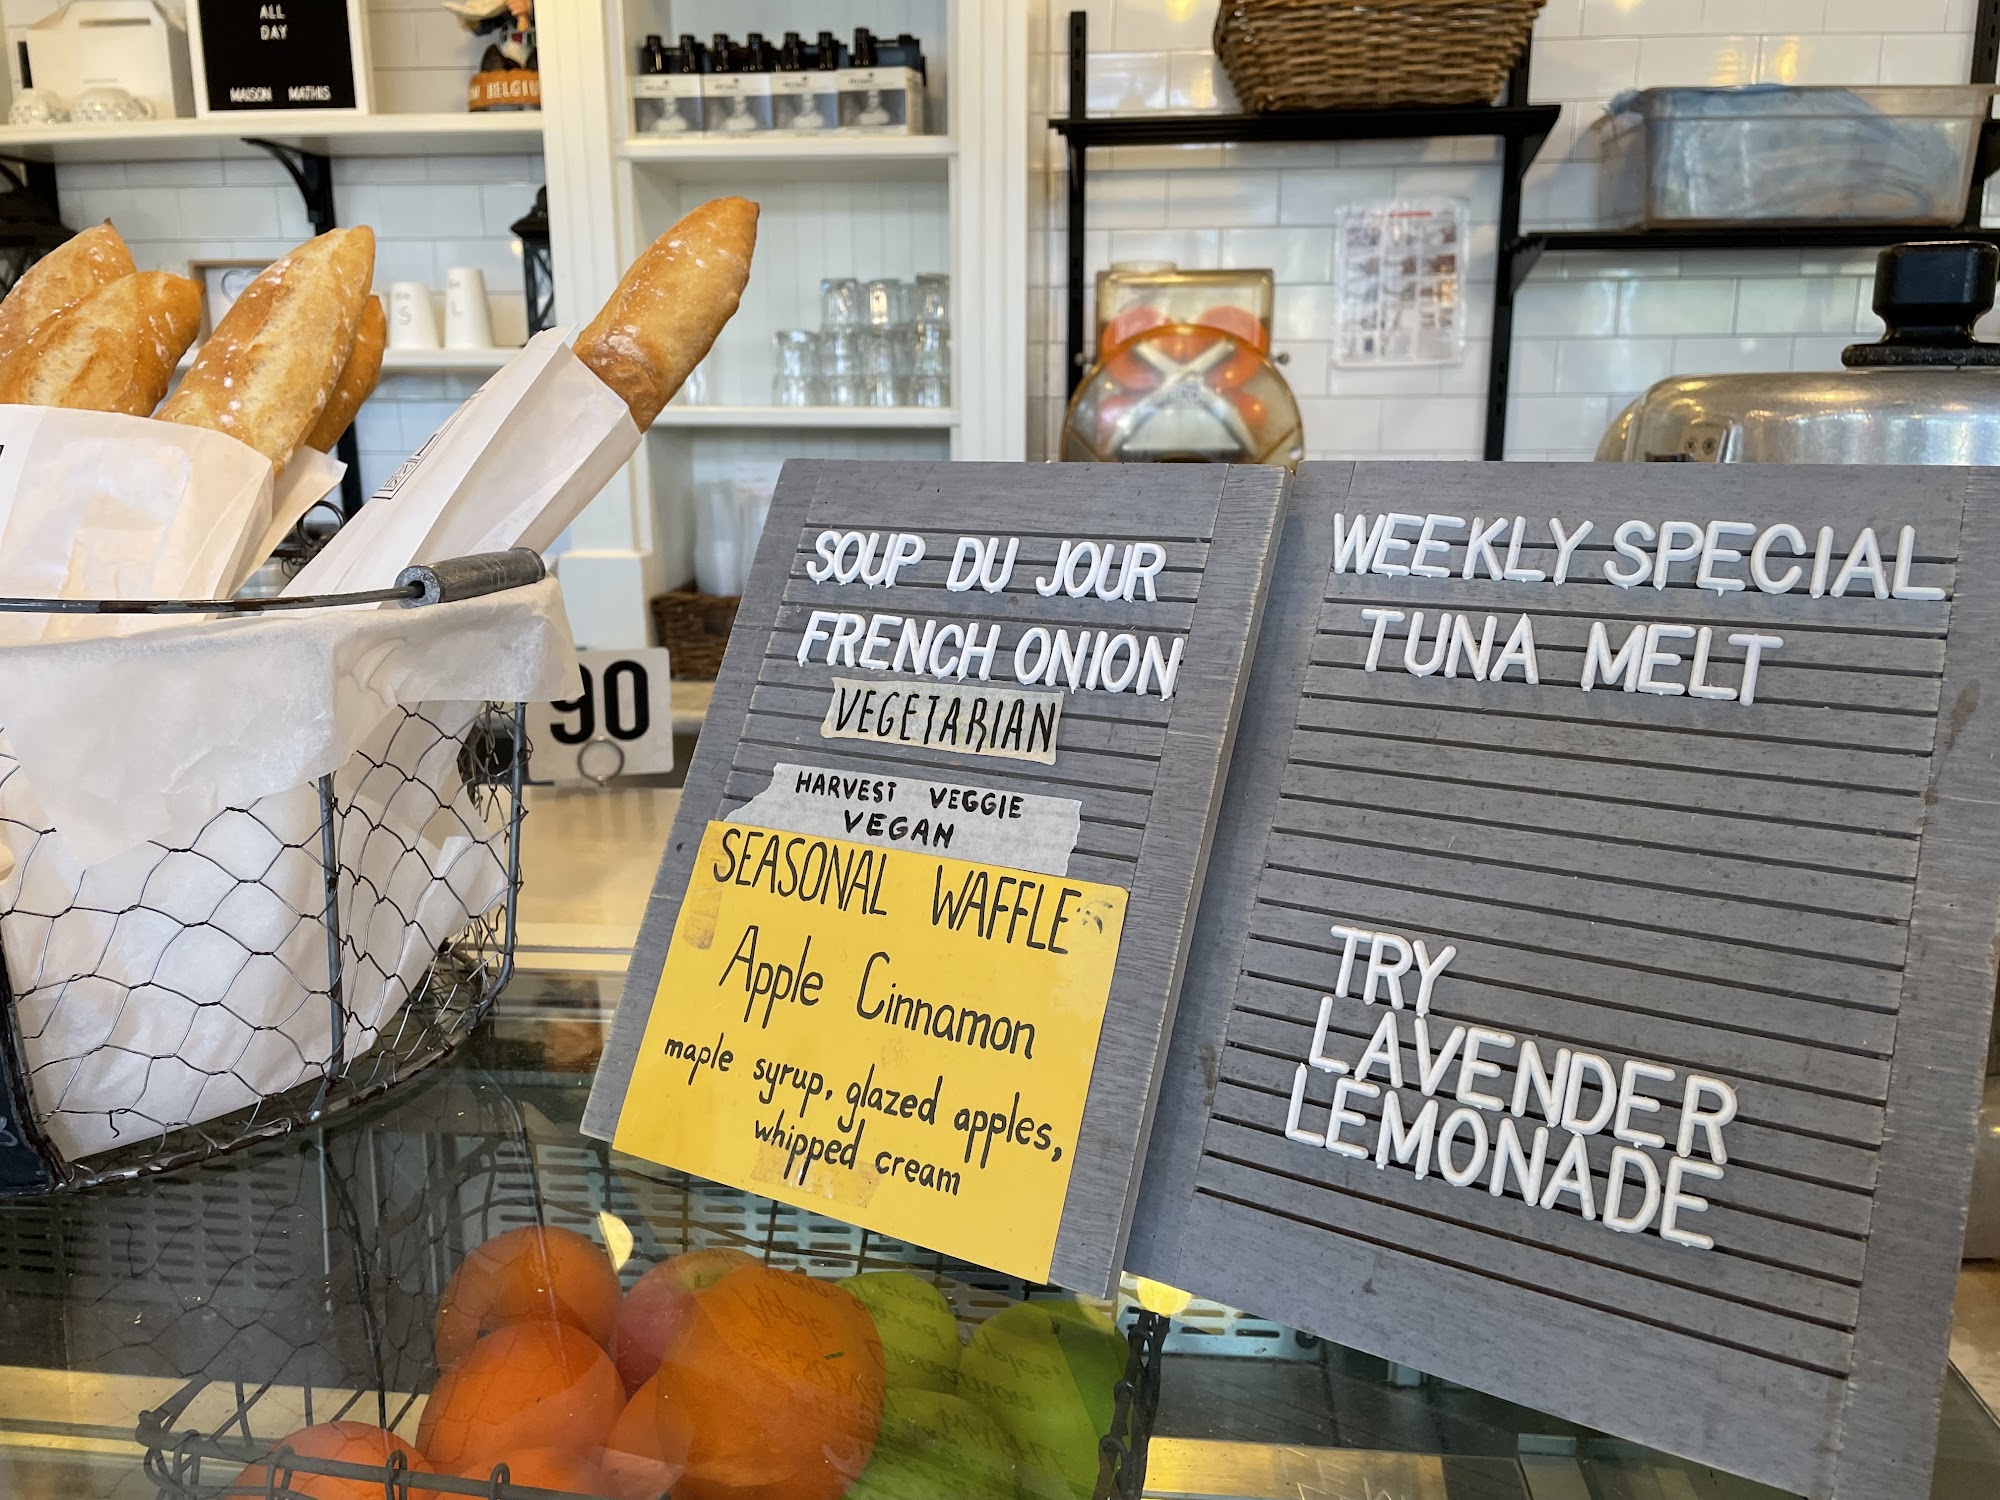 ALL
DAY
MAISON MATHIS
BELGIU
S
L
90
SOUP DU JOUR
FRENCH ONION
VEGETARIAN
HARVEST VEGGIE
VEGAN
SEASONAL WAFFLE
Apple Cinnamon
maple syrup, glazed apples,
whipped cream
WEEKLY SPECIAL
TUNA MELT
TRY
LAVENDER
LEMONADE